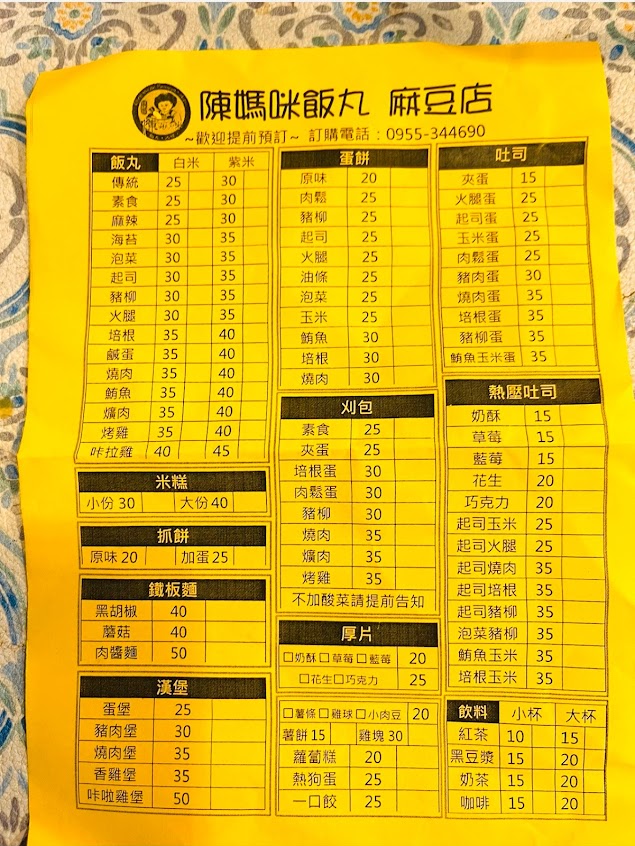 陳媽咪飯丸 麻豆店
~歡迎提前預訂~ 訂購電話：0955-344690
飯丸 白米 紫米
傳統 25 30
素食 25 30
麻辣 25 30
海苔 30 35
泡菜 30 35
起司 30 35
豬柳 30 35
火腿 30 35
培根 35 40
鹹蛋 35 40
燒肉 35 40
鮪魚 35 40
爌肉 35 40
烤雞 35 40
咔拉雞 40 45
米糕
小份 30 大份 40
抓餅
原味 20 加蛋 25
鐵板麵
黑胡椒 40
蘑菇 40
肉醬麵 50
漢堡
蛋堡 25
豬肉堡 30
燒肉堡 35
香雞堡 35
咔啦雞堡 50
蛋餅
原味 20
肉鬆 25
豬柳 25
起司 25
火腿 25
油條 25
泡菜 25
玉米 25
鮪魚 30
培根 30
燒肉 30
刈包
素食 25
夾蛋 25
培根蛋 30
肉鬆蛋 30
豬柳 30
燒肉 35
爌肉 35
烤雞 35
不加酸菜請提前告知
厚片
□奶酥□草莓□藍莓 20
□花生□巧克力 25
□薯條□雞球□小肉豆 20
薯餅 15 雞塊 30
蘿蔔糕 20
熱狗蛋 25
一口餃 25
吐司
夾蛋 15
火腿蛋 25
起司蛋 25
玉米蛋 25
肉鬆蛋 25
豬肉蛋 30
燒肉蛋 35
培根蛋 35
豬柳蛋 35
鮪魚玉米蛋 35
熱壓吐司
奶酥 15
草莓 15
藍莓 15
花生 20
巧克力 20
起司玉米 25
起司火腿 25
起司燒肉 35
起司培根 35
起司豬柳 35
泡菜豬柳 35
鮪魚玉米 35
培根玉米 35
飲料 小杯 大杯
紅茶 10 15
黑豆漿 15 20
奶茶 15 20
咖啡 15 20